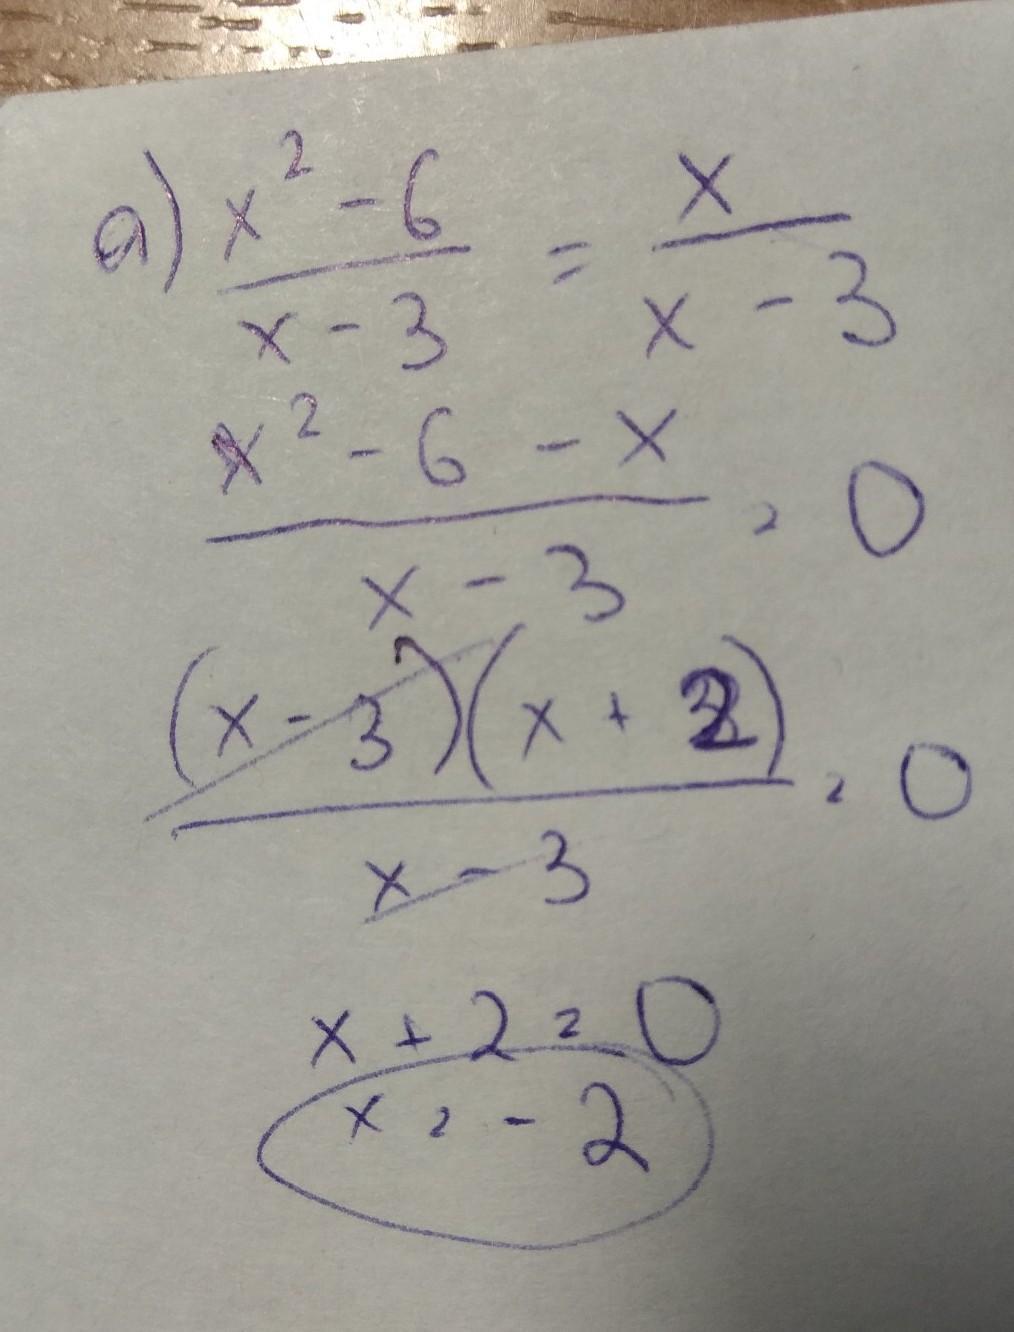 a) x² - 6 / x - 3 = x / x - 3
x² - 6 - x / x - 3 = 0
(x - 3)(x + 2) / x - 3 = 0
x + 2 = 0
x = - 2